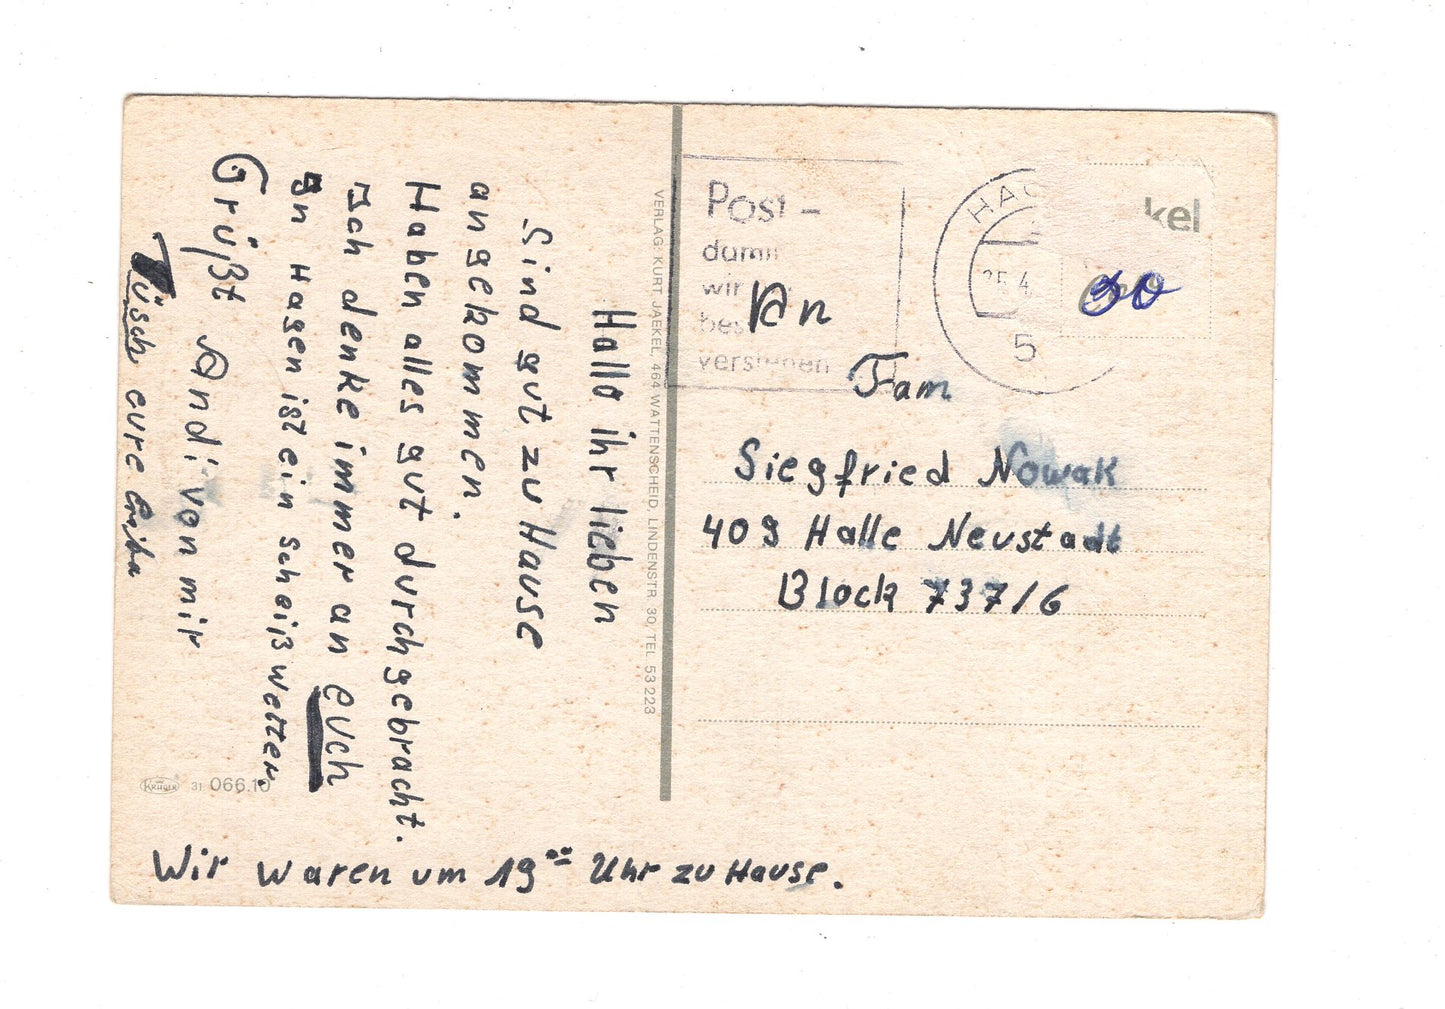 Hallo ihr lieben
Sind gut zu Hause
angekommen.
Haben alles gut durchgebracht.
Ich denke immer an euch
In Hagen ist ein scheiß Wetter.
Grüßt Andi von mir
Tüsch eure
Wir waren um 19°° Uhr zu Hause.
VERLAG: KURT JAEKEL, 464 WATTENSCHEID, LINDENSTR. 30, TEL. 53 223
KRÜGER 31 066.10
Post -
damit
wir
verstehen
HAG
25.4
5
kel
An
Fam
Siegfried Nowak
409 Halle Neustadt
Block 737/6